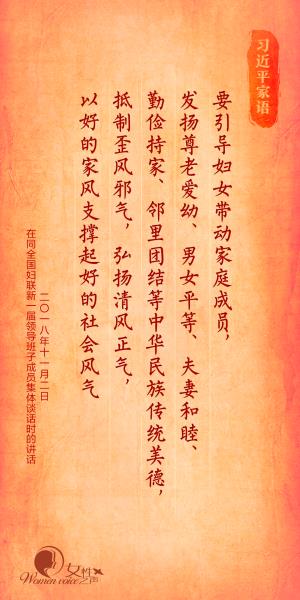 习近平家语
要引导妇女带动家庭成员，
发扬尊老爱幼、男女平等、夫妻和睦、
勤俭持家、邻里团结等中华民族传统美德，
抵制歪风邪气，弘扬清风正气，
以好的家风支撑起好的社会风气
二〇一八年十一月二日
在同全国妇联新一届领导班子成员集体谈话时的讲话
女性之声
Women voice